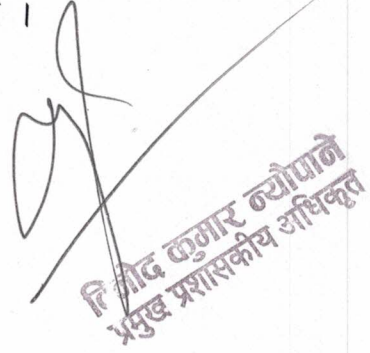 ।
कुमार न्यौपाने
प्रमुख प्रशासकीय अधिकृत